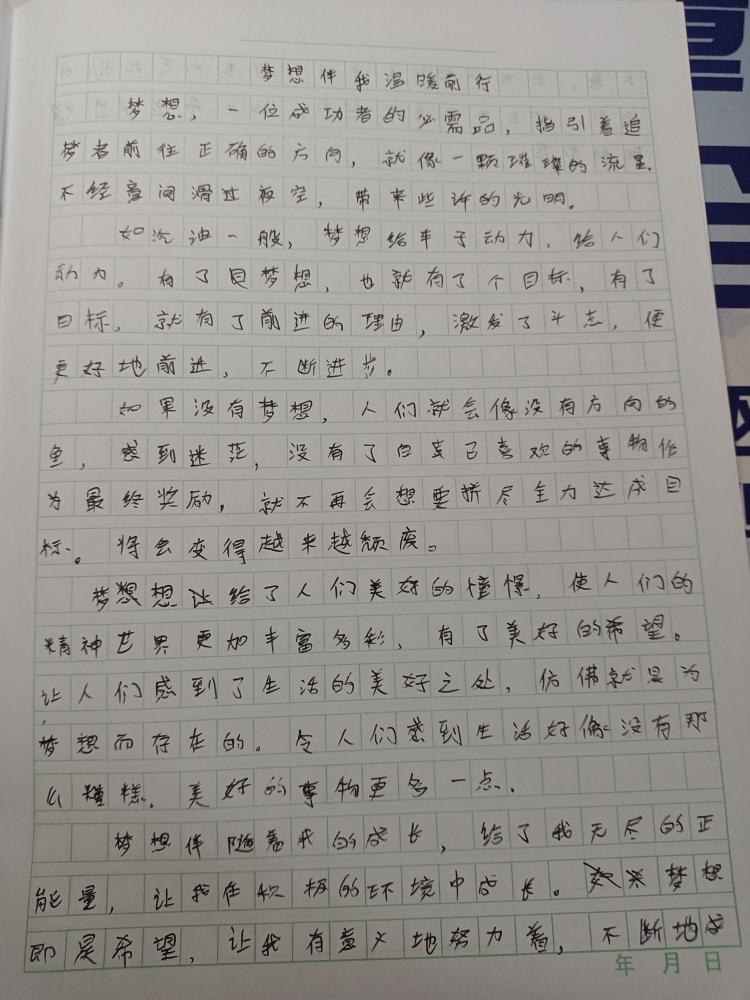 梦想伴我温暖前行
梦想，一位成功者的必需品，指引着追
梦者前往正确的方向，就像一颗璀璨的流星
不经意间滑过夜空，带来些许的光明。
如汽油一般，梦想给车子动力，给人们
动力。有了梦想，也就有了个目标，有了
目标，就有了前进的理由，激发了斗志，便
更好地前进，不断进步。
如果没有梦想，人们就会像没有方向的
鱼，感到迷茫，没有了自己喜欢的事物作
为最终奖励，就不再会想要拼尽全力达成目
标。将会变得越来越颓废。
梦想给了人们美好的憧憬，使人们的
精神世界更加丰富多彩，有了美好的希望。
让人们感到了生活的美好之处，仿佛就是为
梦想而存在的。令人们感到生活好像没有那
么糟糕，美好的事物更多一点.
梦想伴随着我的成长，给了我无尽的正
能量，让我在积极的环境中成长。梦想
即是希望，让我有意义地努力着，不断地成
年 月 日